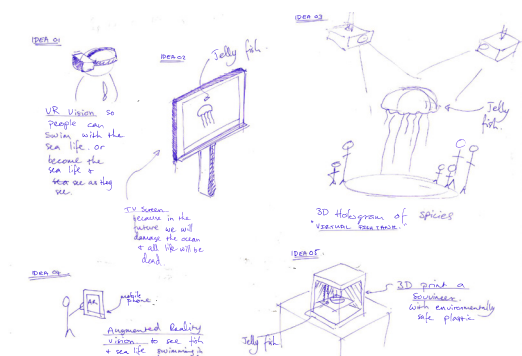 IDEA 01
VR Vision so
people can
swim with the
sea life. or
become the
sea life &
see as they
see.
IDEA 02
Jelly fish.
TV Screen
because in the
future we will
damage the ocean
& all life will be
dead.
IDEA 03
Jelly
fish.
3D Hologram of Spicies
"VIRTUAL FISHTANK"
IDEA 04
AR
mobile
phone.
Augmented Reality
vision to see fish
& sea life swimming in
IDEA 05
3D print a
souvineer
with environmentally
safe plastic
Jelly fish